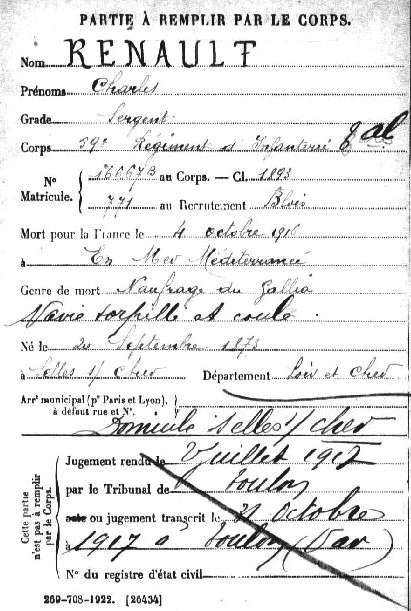 PARTIE À REMPLIR PAR LE CORPS.
Nom RENAULT
Prénoms Charles
Grade Sergent
Corps 59e Régiment d'Infanterie al
N° Matricule. au Corps. — Cl. 1893
771 au Recrutement Blois
Mort pour la France le 4 octobre 1916
à En Mer Méditerrané
Genre de mort Naufrage du Gallia
Navire torpillé et coulé.
Né le 24 Septembre 1873
à Selles s/ Cher Département Loir et Cher
Arrt municipal (pr Paris et Lyon), à défaut rue et N°.
Domicile Selles s/ Cher
Cette partie n'est pas à remplir par le Corps.
Jugement rendu le Juillet 1917
par le Tribunal de Toulon
acte ou jugement transcrit le 21 Octobre
à 1917 à Toulon (Var)
N° du registre d'état civil
269-708-1922. [26434]